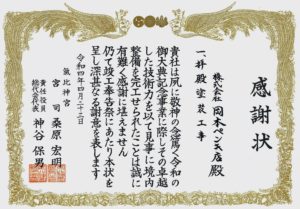 感謝状
一、拝殿塗装工事
株式会社 岡本ペンキ店 殿
貴社は夙に敬神の念篤く令和の
御大典記念事業に際しその卓越
した技術力を以て見事に境内
整備を完工せられたことは誠に
有難く感謝に堪えません
仍て竣工奉告祭にあたり本状を
呈し深甚なる謝意を表します
令和四年四月二十三日
氣比神宮
宮司 桑原宏明
責任役員
総代会代表 神谷保男